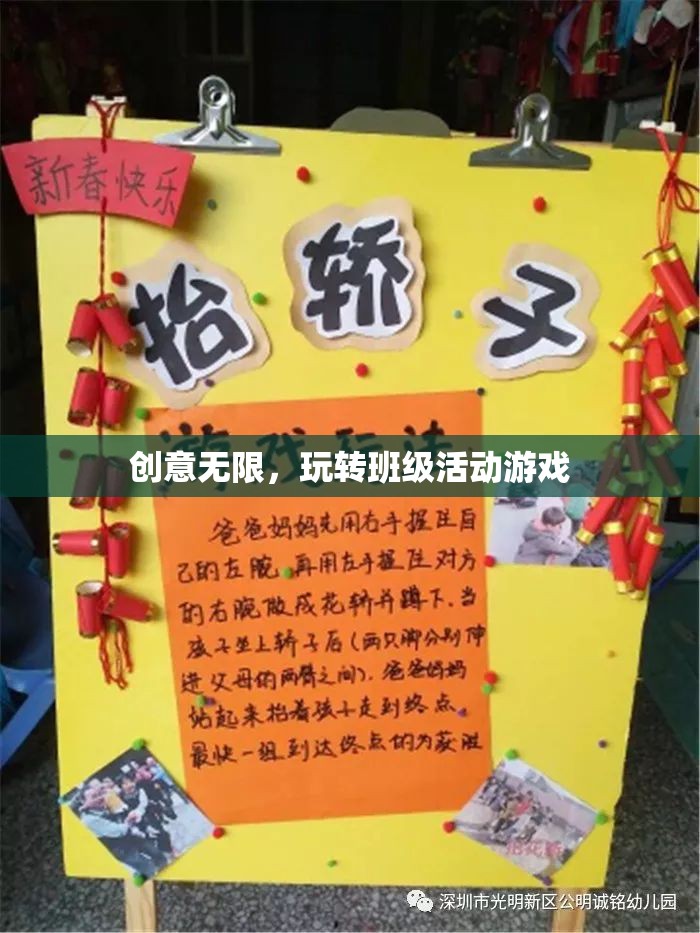 新春快乐
抬轿子
游戏玩法
创意无限，玩转班级活动游戏
爸爸妈妈先用右手握住自
己的左腕,再用左手握住对方
的右腕做成花轿并蹲下、当
孩子坐上轿子后(两只脚分别伸
进父母的两臂之间)、爸爸妈妈
站起来抬着孩子走到终点、
最快一组到达终点的为获胜
抬花轿
深圳市光明新区公明诚铭幼儿园